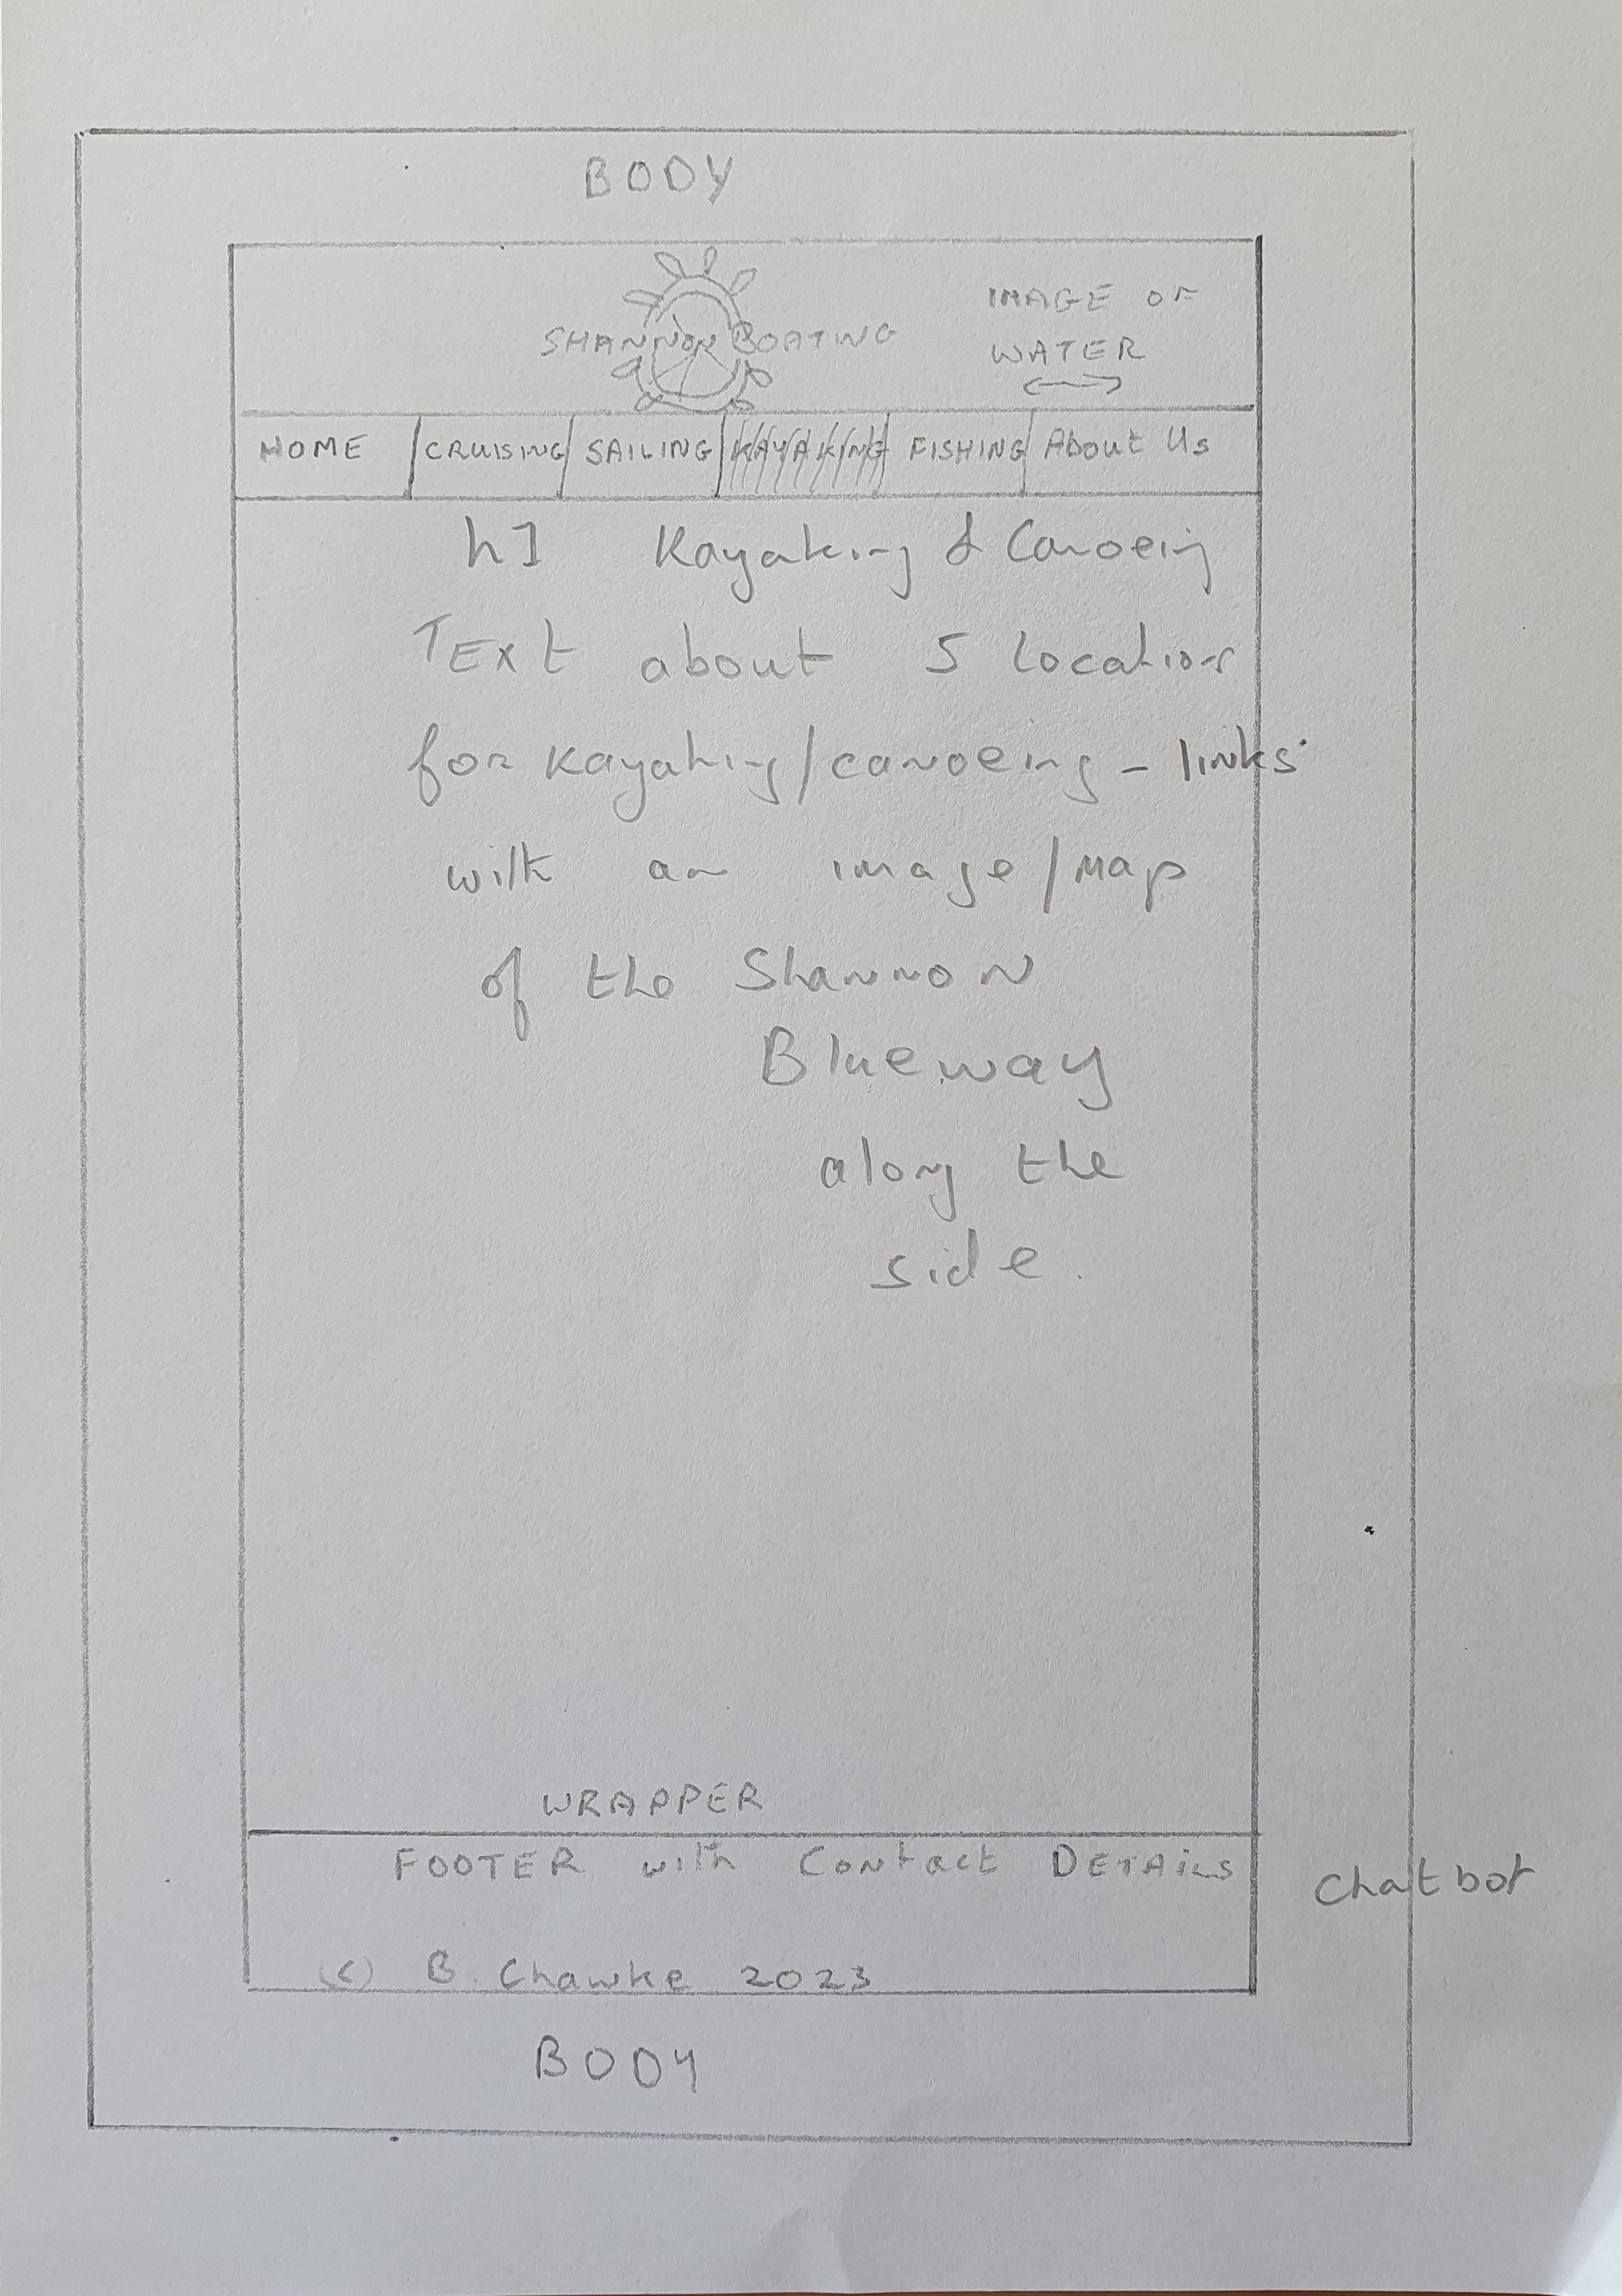 BODY
SHANNON BOATING
IMAGE OF
WATER
HOME CRUISING SAILING KAYAKING FISHING About Us
h1 Kayaking & Canoeing
TExt about 5 locations
for kayaking/canoeing - links
with an image/map
of the Shannon
Blueway
along the
side.
WRAPPER
FOOTER with Contact DETAILS
Chatbot
(c) B. Chawke 2023
BODY